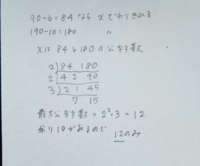 90-6=84 なら xでわりきれる
190-10=180 〃
xは 84と180の公約数
2)84 180
2)42 90
3)21 45
7 15
最大公約数=2²・3=12
余り10があるので
12のみ